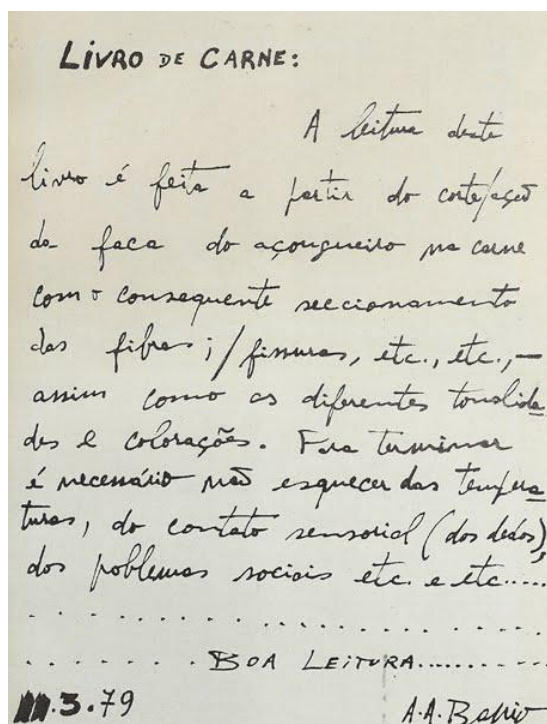 LIVRO DE CARNE:
A leitura deste
livro é feita a partir do corte/ação
da faca do açougueiro na carne
com o consequente seccionamento
das fibras; / fissuras, etc., etc., —
assim como as diferentes tonalida
des e colorações. Para terminar
é necessário não esquecer das tempera
turas, do contato sensorial (dos dedos),
dos problemas sociais etc. e etc.....
. . . . . . . . . . . . . . . . . .
. . . . . . . BOA LEITURA............
.3.79 A.A.Barrio